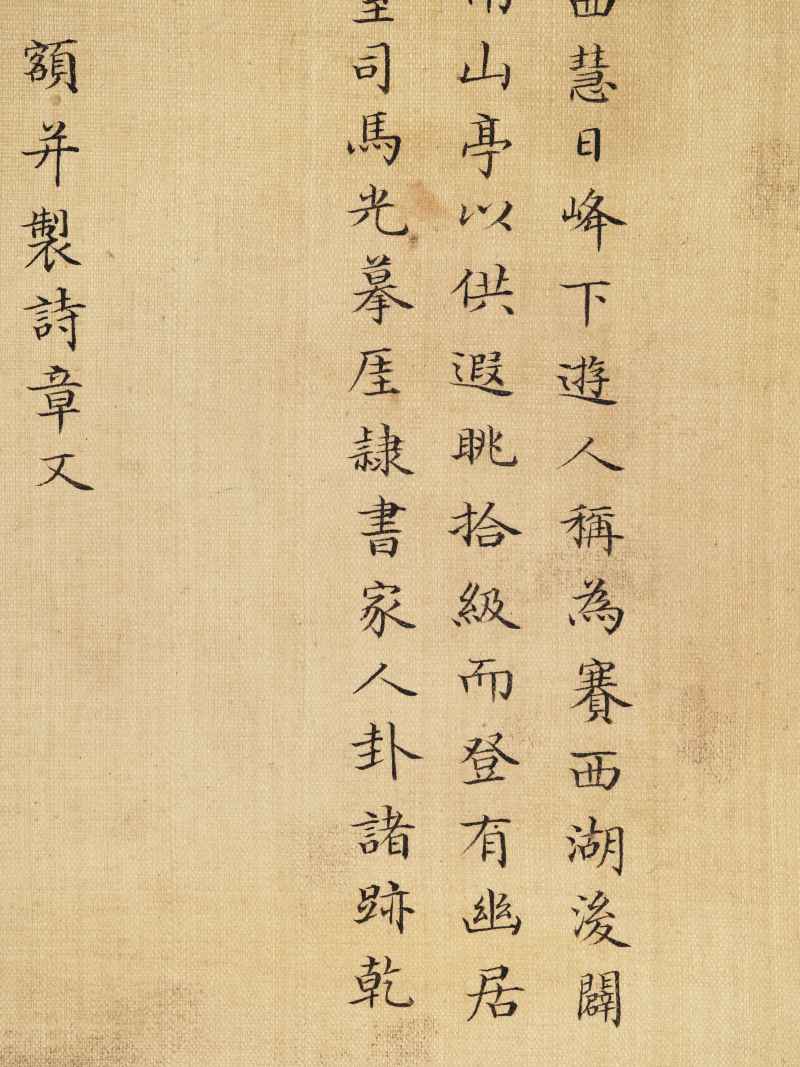 慧日峰下遊人稱為賽西湖浚闢
山亭以供遐眺拾級而登有幽居
司馬光摹厓隷書家人卦諸跡乾
額并製詩章又